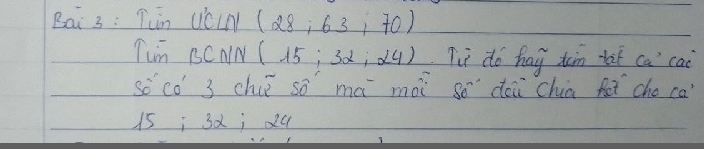 Bài 3 : Tìm ƯCLN ( 28 ; 63 ; 70 )
Tìm BCNN ( 15 ; 32 ; 24 ) Từ đó hãy tìm tất cả các
số có 3 chữ số mà mỗi số đều chia hết cho cả
15 ; 32 ; 24